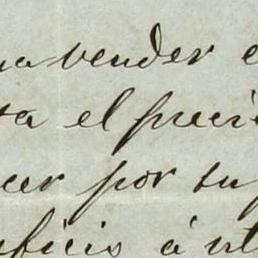 na vender e
ta el preci
cer por su
eficio á ut